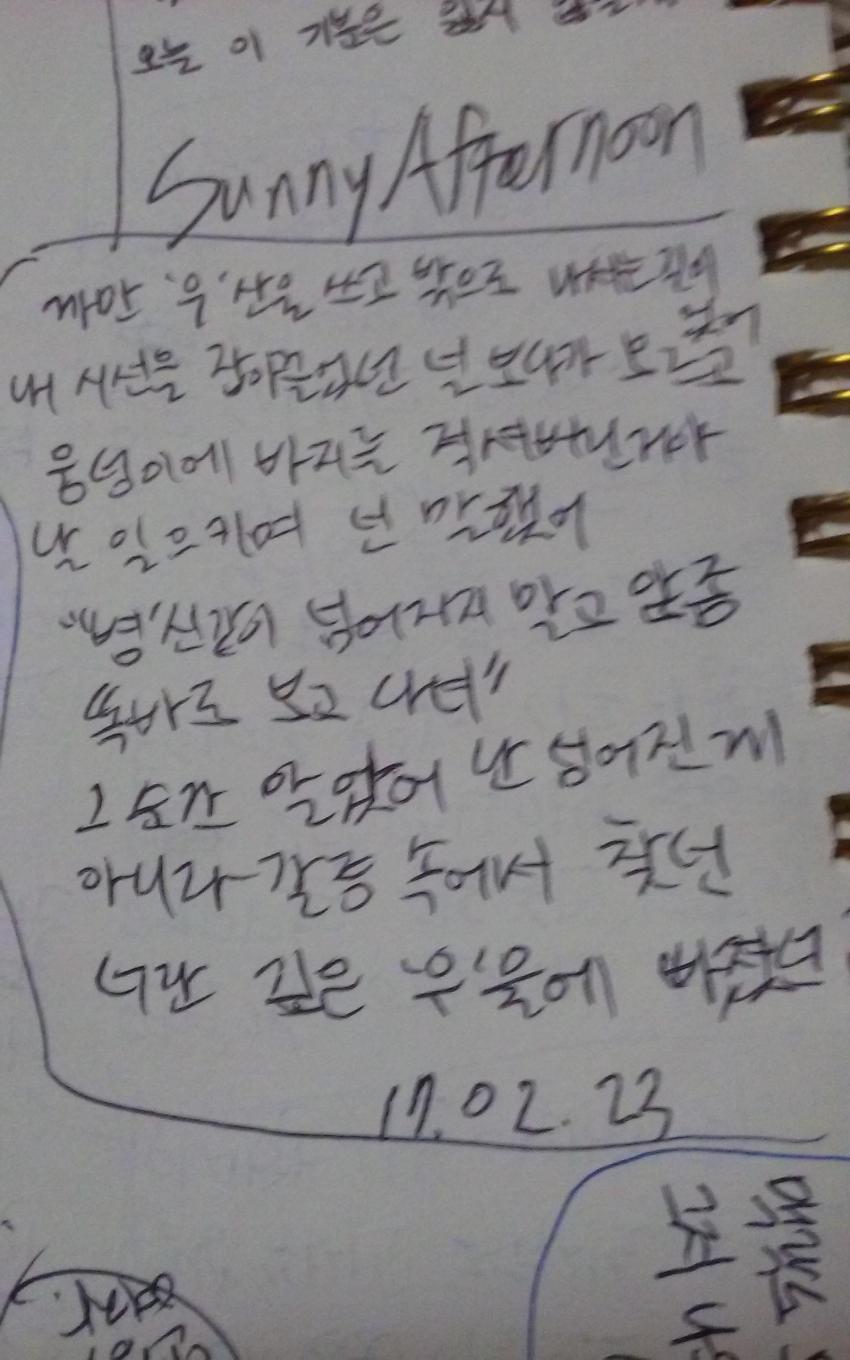 오늘 이 기분은 잊지
Sunny Afternoon
까만 '우'산을 쓰고 밖으로 나서는 길에
있어
내 시선을 잡아끌었던 널 보다가 모르고
웅덩이에 바지를 적셔버린거야
날 일으키며 넌 말했어
"'병'신같이 넘어지지 말고 앞좀
똑바로 보고 다녀"
그 순간 알았어 난 넘어진게
아니라 갈증 속에서 찾던
너란 깊은 '우'물에 빠졌던
17.02.23